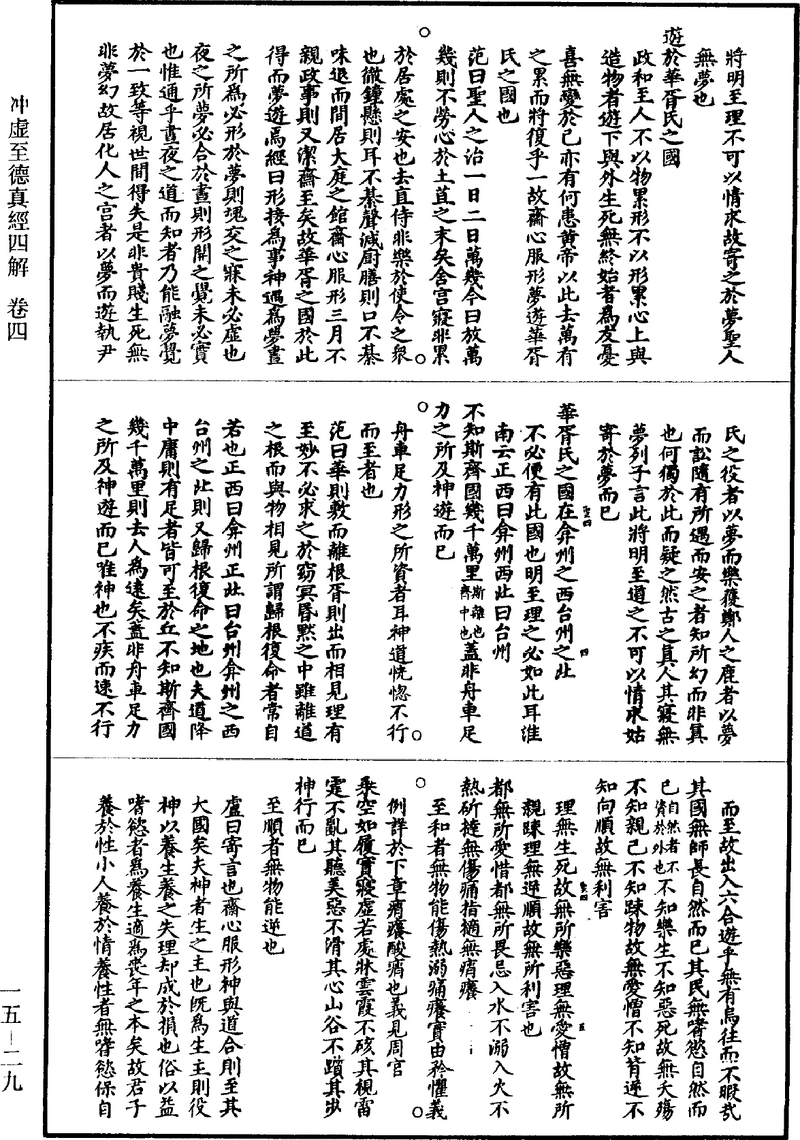 冲虛至德真經四解　卷四
將明至理不可以情求故寄之於夢聖人
無夢也
遊於華胥氏之國
政和至人不以物累形不以形累心上與
造物者遊下與外生死無終始者爲友憂
喜無變於已亦有何患黄帝以此去萬有
之累而將復乎一故齋心服形夢遊華胥
氏之國也
范曰聖人之治一日二日萬幾今日放萬
幾則不勞心於土苴之末矣舍宫寢非累
於居處之安也去直侍非樂於使令之衆
也徹鐘懸則耳不綦聲減厨膳則口不綦
味退而間居大庭之館齋心服形三月不
親政事則又潔齋至矣故華胥之國於此
得而夢遊焉經曰形接爲事神遇爲夢晝
之所為必形於夢則魂交之寐未必虛也
夜之所夢必合於晝則形開之覺未必實
也惟通乎晝夜之道而知者乃能融夢覺
於一致等視世間得失是非貴賤生死無
非夢幻故居化人之宫者以夢而遊執尹
氏之役者以夢而樂獲鄭人之鹿者以夢
而訟隨有所遇而安之者知所幻而非真
也何獨於此而疑之然古之真人其寢無
夢列子言此將明至道之不可以情求姑
寄於夢而已
華胥氏之國在弇州之西台州之北
不必便有此國也明至理之必如此耳淮
南云正西曰弇州西北曰台州
不知斯齊國幾千萬里斯離也齊中也蓋非舟車足
力之所及神遊而已
舟車足力形之所資者耳神道恍惚不行
而至者也
范曰華則敷而離根胥則出而相見理有
至妙不必求之於窈冥昏默之中雖離道
之根而與物相見所謂歸根復命者常自
若也正西曰弇州正北曰台州弇州之西
台州之北則又歸根復命之地也夫道降
中庸則有足者皆可至於丘不知斯齊國
幾千萬里則去人為遠矣蓋非舟車足力
之所及神遊而已唯神也不疾而速不行
而至故出入六合遊乎無有烏往而不暇哉
其國無師長自然而已其民無嗜慾自然而
已自然者不資於外也不知樂生不知惡死故無夭殤
不知親己不知踈物故無愛憎不知背逆不
知向順故無利害
理無生死故無所樂惡理無愛憎故無所
親踈理無逆順故無所利害也
都無所愛惜都無所畏忌入水不溺入火不
熱斫撻無傷痛指擿無痟癢
至和者無物能傷熱溺痛癢實由矜懼義
例詳於下章痟癢酸痟也義見周官
乘空如履實寢虛若處牀雲霞不硋其視雷
霆不亂其聽美惡不滑其心山谷不躓其步
神行而已
至順者無物能逆也
盧曰寄言也齋心服形神與道合則至其
大國矣夫神者生之主也既為生主則役
神以養生養之失理却成於損也俗以益
嗜慾者爲養生適爲喪年之本矣故君子
養於性小人養於情養性者無嗜慾保自
一五－二九